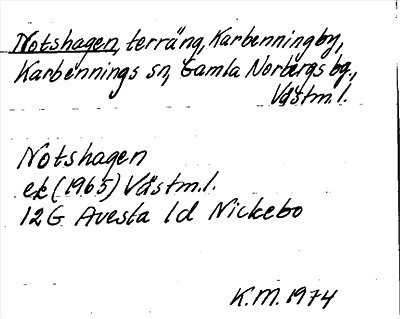 Notshagen, terräng, Karbenning by,
Karbennings sn, Gamla Norbergs bg.,
Västm.l.
Notshagen
ek (1965) Västm.l.
12G Avesta 1d Nickebo
K.M. 1974